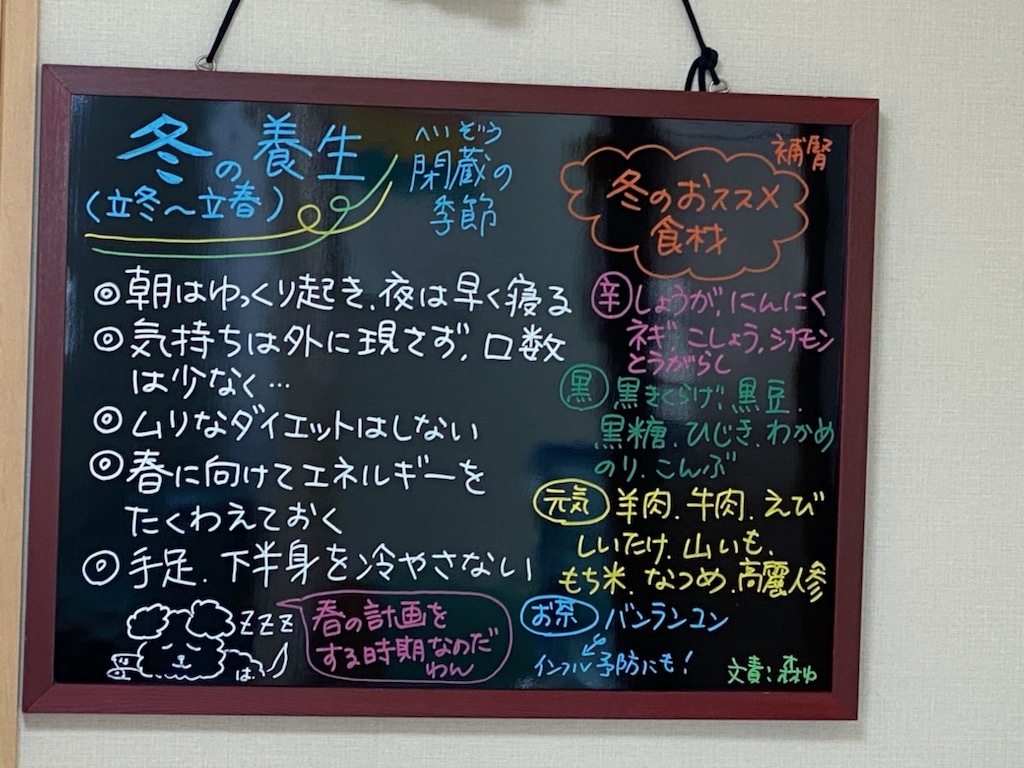 冬の養生
(立冬〜立春)
へいぞう
閉蔵の
季節
◎朝はゆっくり起き、夜は早く寝る
◎気持ちは外に現さず、口数
は少なく…
◎ムリなダイエットはしない
◎春に向けてエネルギーを
たくわえておく
◎手足、下半身を冷やさない
ZZZ
は
春の計画を
する時期なのだ
わん
補腎
冬のおススメ
食材
辛 しょうが、にんにく
ネギ、こしょう、シナモン
とうがらし
黒 黒きくらげ、黒豆、
黒糖、ひじき、わかめ
のり、こんぶ
元気 羊肉、牛肉、えび
しいたけ、山いも、
もち米、なつめ、高麗人参
お茶 バンランコン
インフル予防にも!
文責:森ゆ